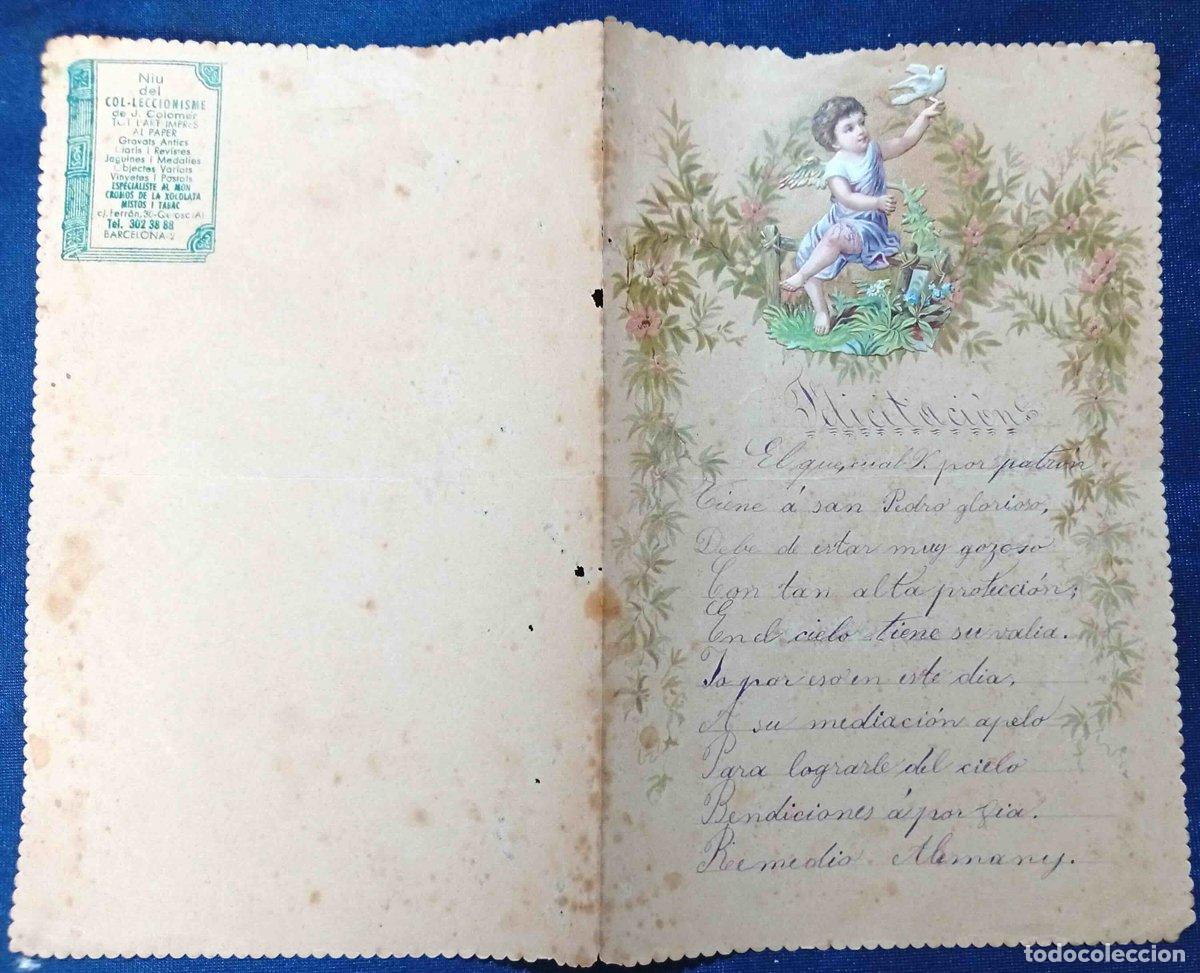 Niu
del
COL-LECCIONISME
de J. Colomer
TOT L'ART IMPRÈS
AL PAPER
Gravats Antics
Diaris i Revistes
Joguines i Medalles
Objectes Variats
Vinyetes i Postals
ESPECIALISTE AL MON
CROMOS DE LA XOCOLATA
MISTOS I TABAC
c/. Ferrán, 30
Tel. 302 38 88
BARCELONA-2
Felicitación
El que, cual V. por patrón
Tiene á san Pedro glorioso,
Debe de estar muy gozoso
Con tan alta protección;
En el cielo tiene su valia.
Yo por eso en este dia,
A su mediación apelo
Para lograrle del cielo
Bendiciones á porfia.
Remedio Alemany.
todocoleccion